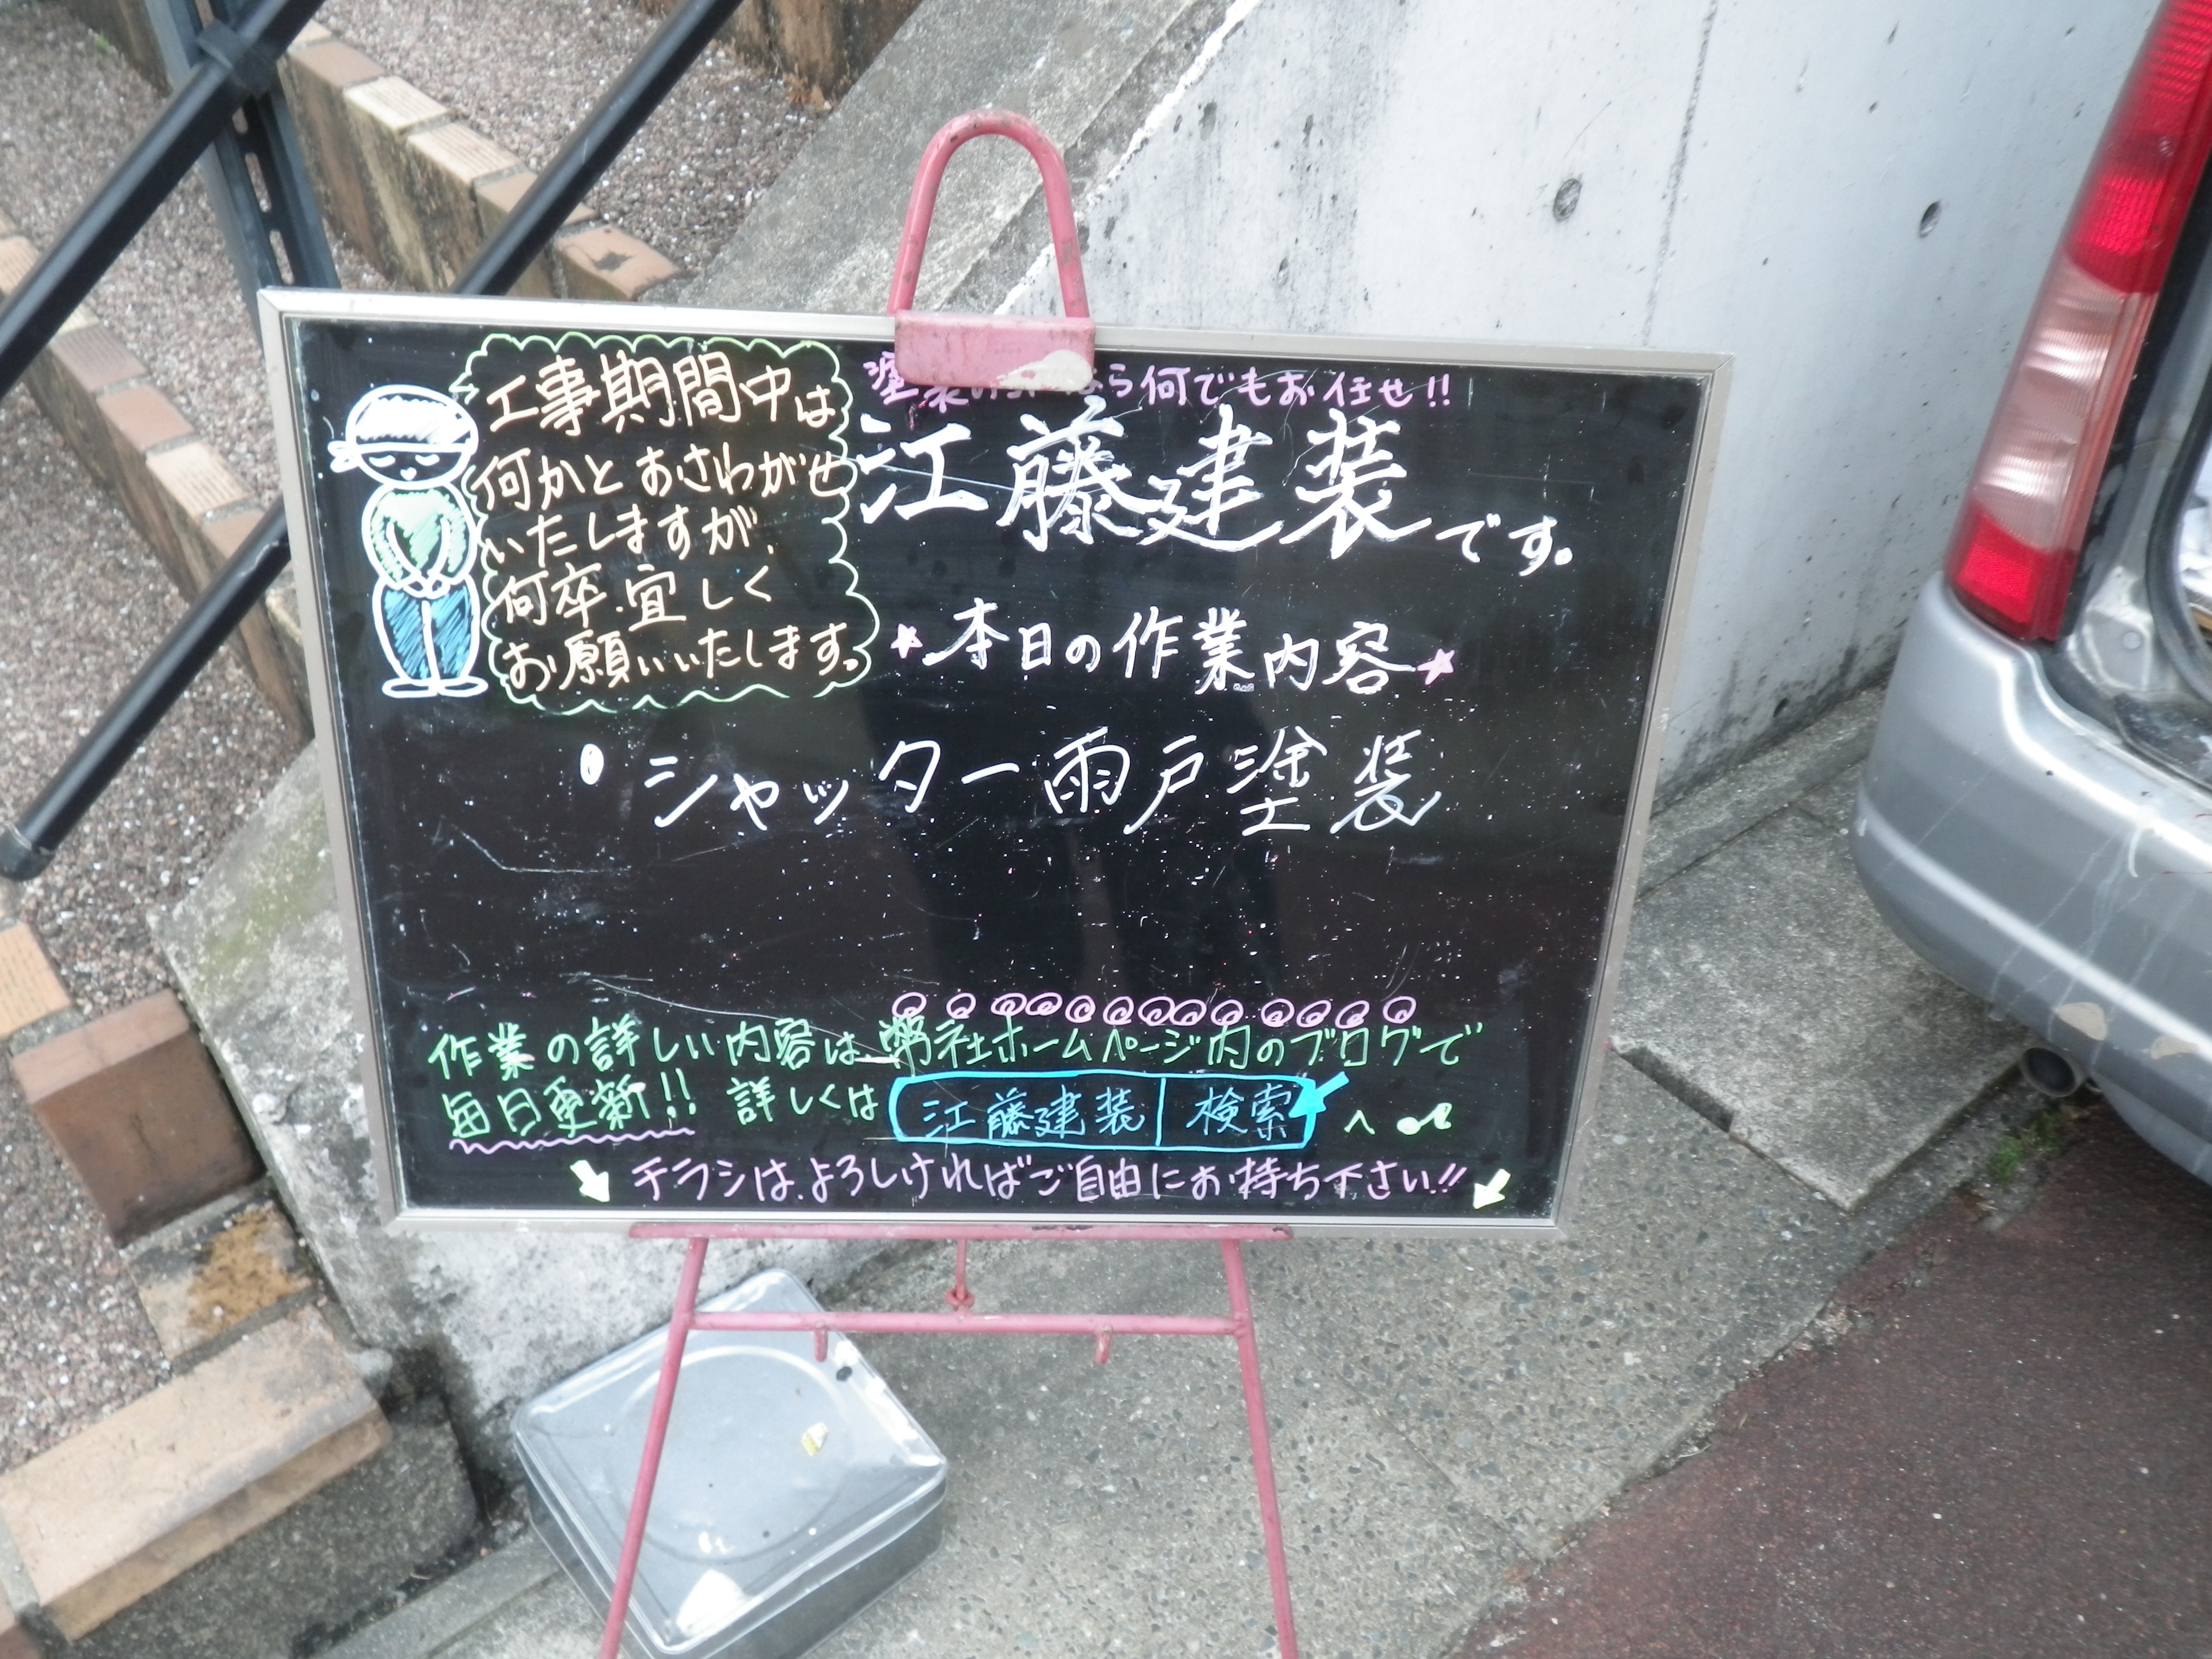 工事期間中は
何かとおさわがせ
いたしますが、
何卒、宜しく
お願いいたします。
何でもお任せ!!
江藤建装です。
★本日の作業内容★
・シャッター雨戸塗装
作業の詳しい内容は、弊社ホームページ内のブログで
毎日更新!! 詳しくは 江藤建装 検索 へ
チラシは、よろしければご自由にお持ち下さい!!